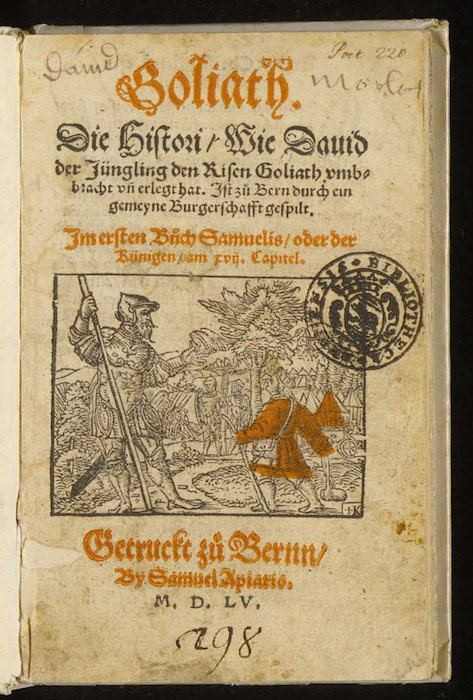 Dauid
Poet 220
Goliath.
Die Histori / Wie Dauid
der Jüngling den Risen Goliath vmb⸗
bracht vñ erlegt hat. Ist zů Bern durch ein
gemeyne Burgerschafft gespilt.
Im ersten Bůch Samuelis / oder der
Künigen / am xvij. Capitel.
BIBLIOTHECA
HK
Getruckt zů Bernn /
By Samuel Apiario.
M. D. LV.
298